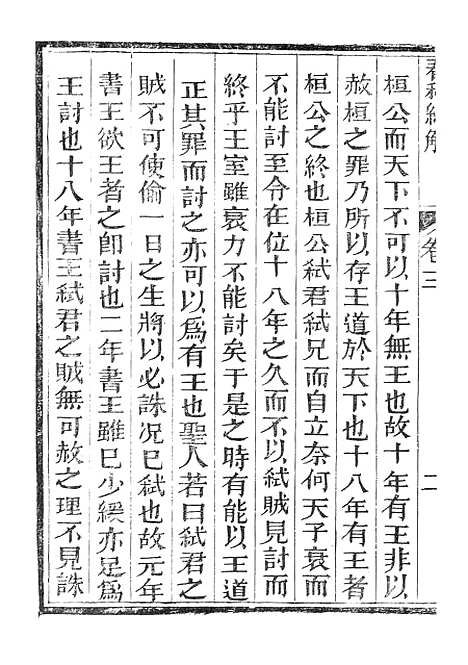 春秋經解
卷三
二
桓公而天下不可以十年無王也故十年有王非以
赦桓之罪乃所以存王道於天下也十八年有王者
桓公之終也桓公弒君弒兄而自立奈何天子衰而
不能討至令在位十八年之久而不以弒賊見討而
終乎王室雖衰力不能討矣于是之時有能以王道
正其罪而討之亦可以爲有王也聖人若曰弒君之
賊不可使偷一日之生將以必誅况巳弒也故元年
書王欲王者之卽討也二年書王雖巳少緩亦足爲
王討也十八年書王弒君之賊無可赦之理不見誅